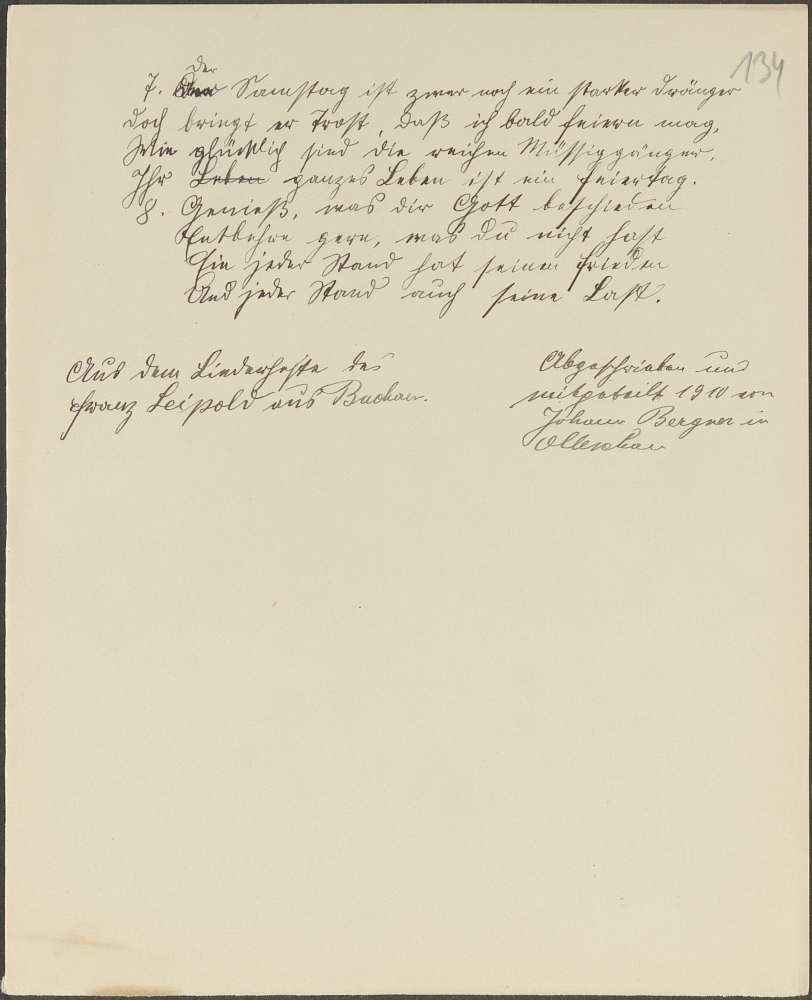 134
der
7. Samstag ist zwar noch ein starker Dränger
Doch bringt er Trost, daß ich bald feiern mag,
Wie glücklich sind die reichen Müssiggänger,
Ihr Leben ganzes Leben ist ein Feiertag.
8. Genieß, was dir Gott beschieden
Entbehre gern, was du nicht hast
Ein jeder Stand hat seinen Frieden
Und jeder Stand auch seine Last.
Aus dem Liederhefte des
Franz Leipold aus Buchau.
Abgeschrieben und
mitgeteilt 1910 von
Johann Bergner in